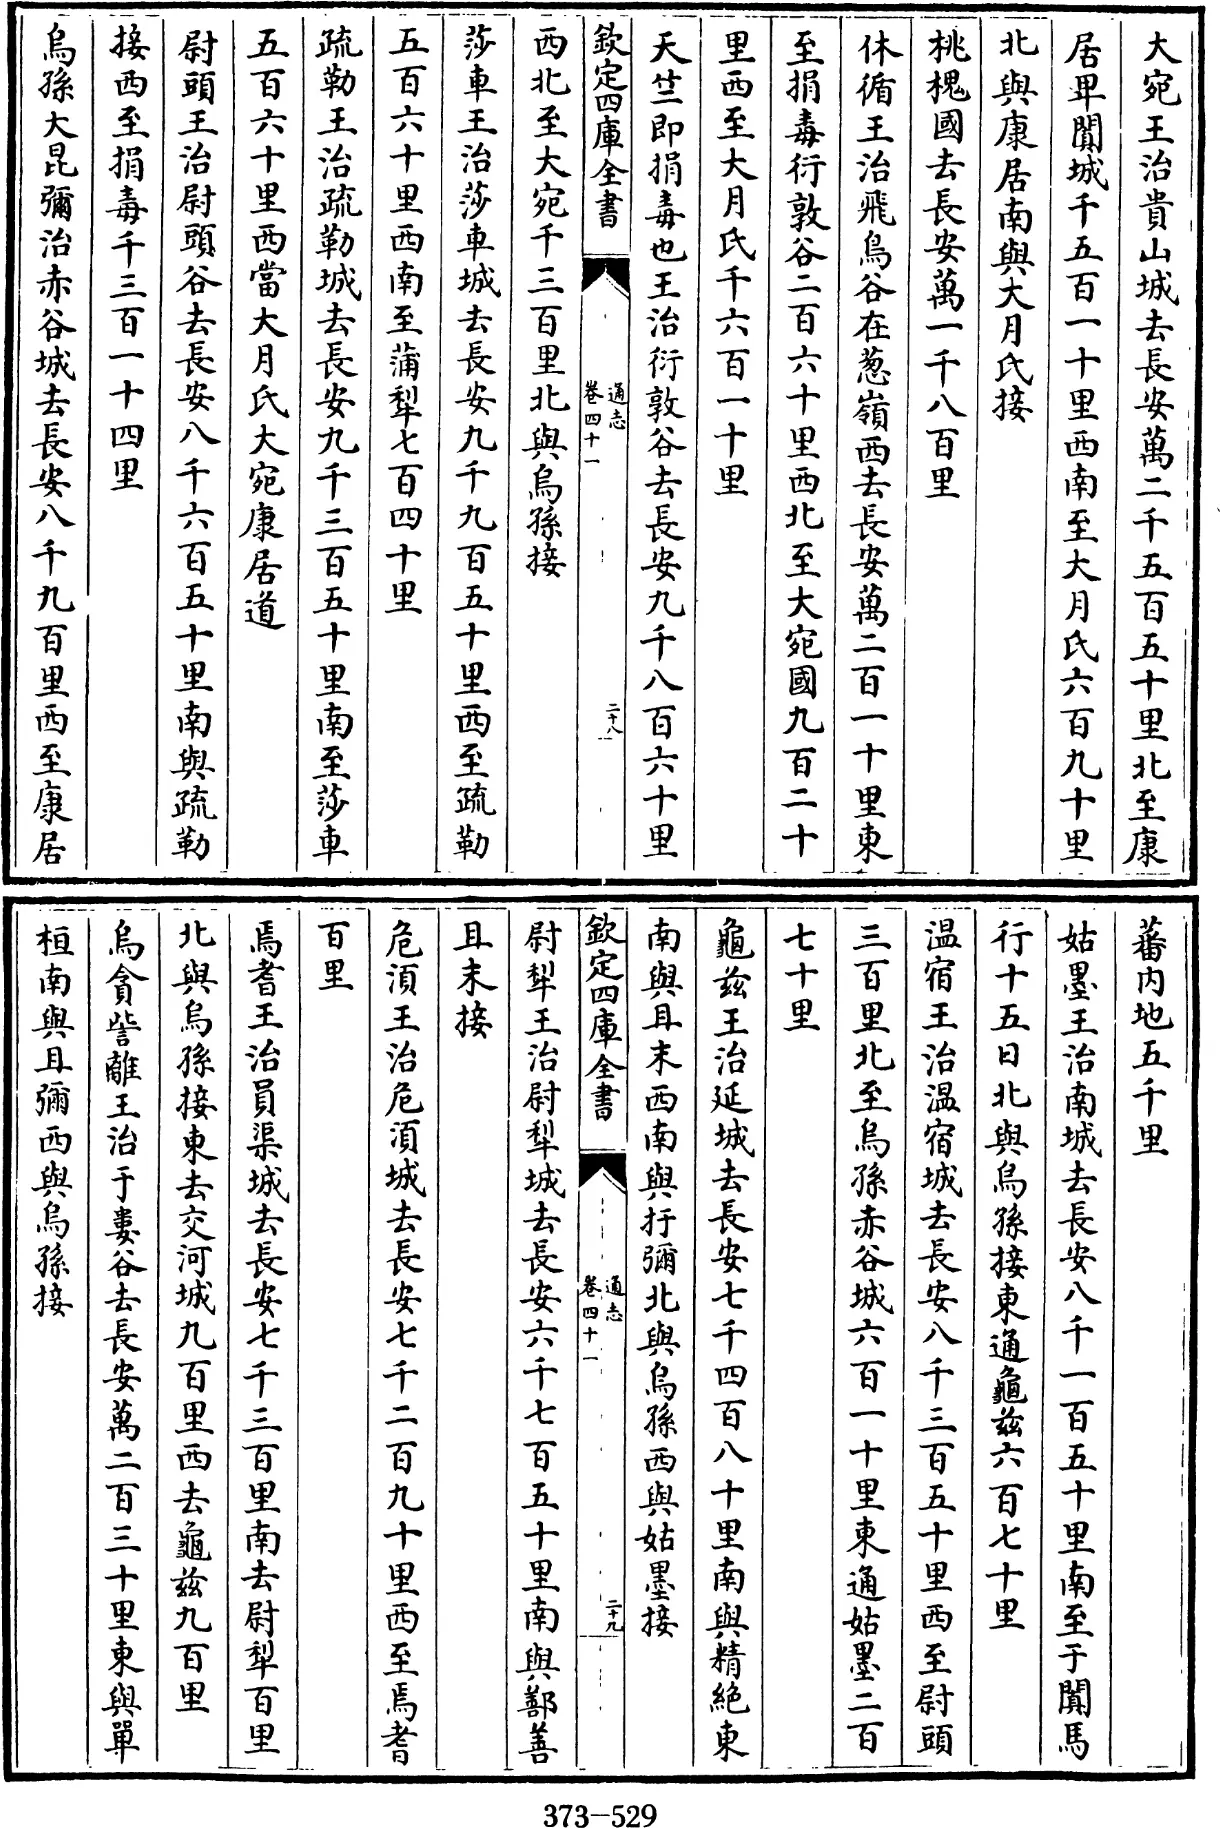 大宛王治貴山城去長安萬二千五百五十里北至康
居卑闐城千五百一十里西南至大月氏六百九十里
北與康居南與大月氏接
桃槐國去長安萬一千八百里
休循王治飛鳥谷在葱嶺西去長安萬二百一十里東
至捐毒衍敦谷二百六十里西北至大宛國九百二十
里西至大月氏千六百一十里
天竺即捐毒也王治衍敦谷去長安九千八百六十里
欽定四庫全書
通志
卷四十一
二十八
西北至大宛千三百里北與烏孫接
莎車王治莎車城去長安九千九百五十里西至疏勒
五百六十里西南至蒲犁七百四十里
疏勒王治疏勒城去長安九千三百五十里南至莎車
五百六十里西當大月氏大宛康居道
尉頭王治尉頭谷去長安八千六百五十里南與疏勒
接西至捐毒千三百一十四里
烏孫大昆彌治赤谷城去長安八千九百里西至康居
蕃内地五千里
姑墨王治南城去長安八千一百五十里南至于闐馬
行十五日北與烏孫接東通龜兹六百七十里
温宿王治温宿城去長安八千三百五十里西至尉頭
三百里北至烏孫赤谷城六百一十里東通姑墨二百
七十里
龜兹王治延城去長安七千四百八十里南與精絶東
南與且末西南與扜彌北與烏孫西與姑墨接
欽定四庫全書
通志
卷四十一
二十九
尉犁王治尉犁城去長安六千七百五十里南與鄯善
且末接
危湏王治危湏城去長安七千二百九十里西至焉耆
百里
焉耆王治員渠城去長安七千三百里南去尉犁百里
北與烏孫接東去交河城九百里西去龜兹九百里
烏貪訾離王治于婁谷去長安萬二百三十里東與單
桓南與且彌西與烏孫接
373-529